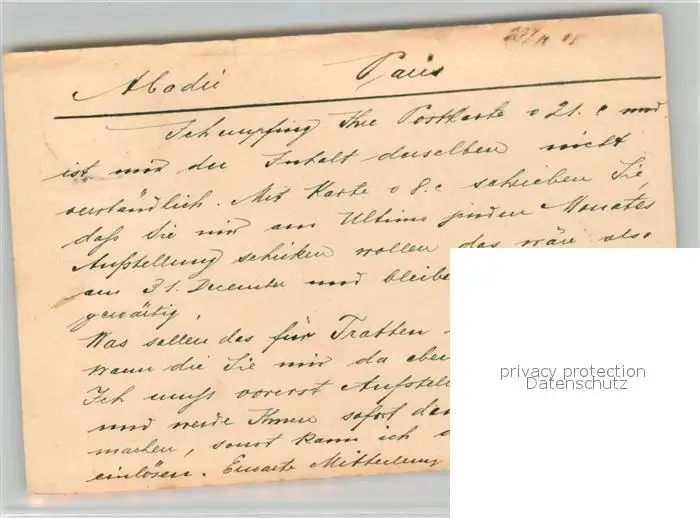 27/11 05
Abadie Paris
Ich empfing Ihre Postkarte v 21. c und
ist mir der Inhalt derselben nicht
verständlich. Mit Karte v 8. c schrieben Sie,
daß Sie mir am Ultimo jeden Monates
Aufstellung schicken wollen das wäre also
am 31. Dezember und bleibe
gewärtig.
Was sollen das für Tratten
wann die Sie mir da aber
Ich muß vorerst Aufstell
und werde Ihnen sofort
machen, sonst kann ich
einlösen. Erwarte Mitteilung
privacy protection
Datenschutz